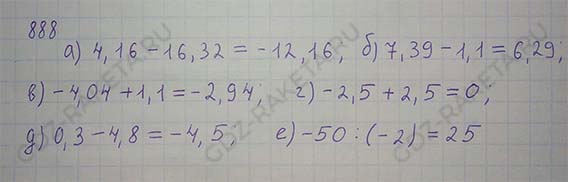 888
а) 4,16 - 16,32 = -12,16, б) 7,39 - 1,1 = 6,29;
в) -4,04 + 1,1 = -2,94; г) -2,5 + 2,5 = 0;
д) 0,3 - 4,8 = -4,5; е) -50 : (-2) = 25
GDZ-RAKETA.RU